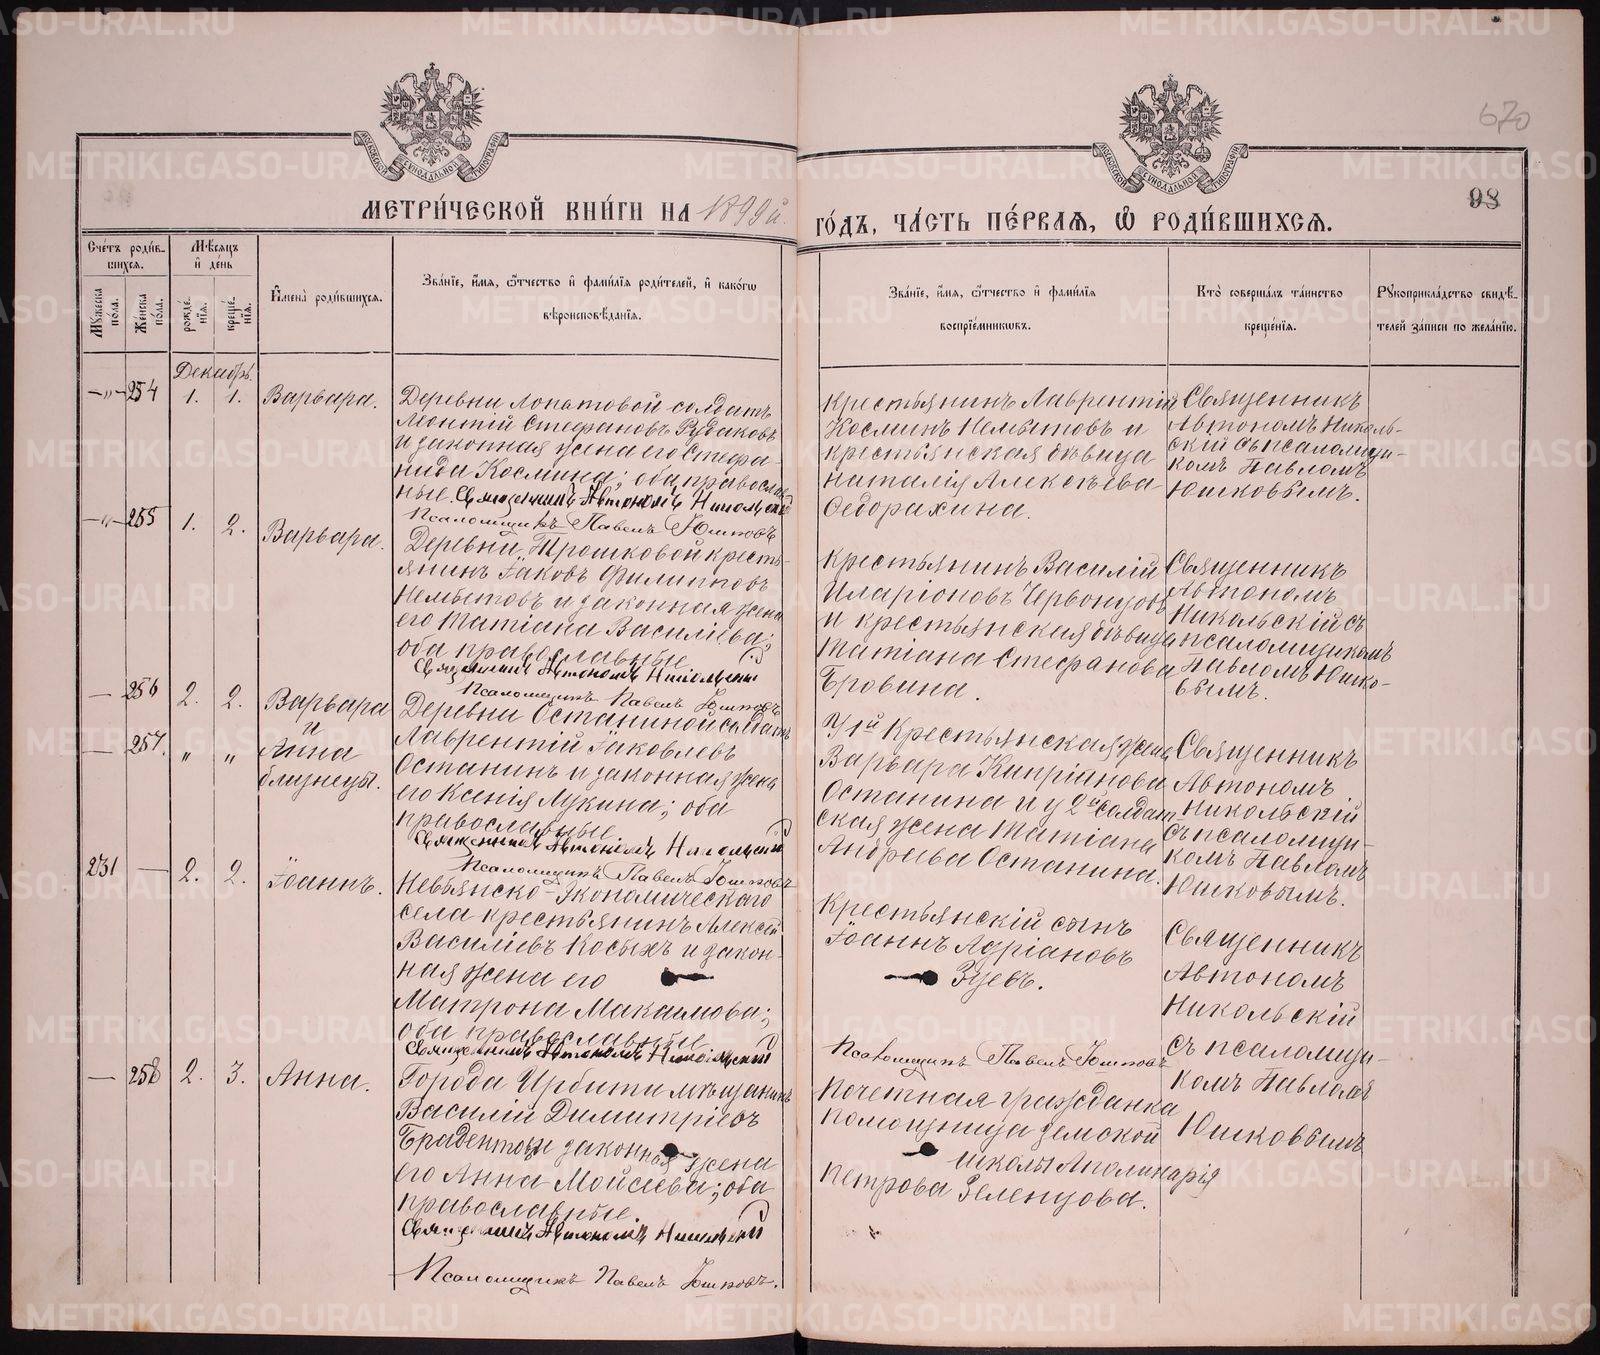 670
98
МЕТРИ́ЧЕСКОЙ КНИ́ГИ НА 1899й. ГО́ДЪ, ЧА́СТЬ ПЕ́РВАѦ, Ѡ РОДИ́ВШИХСѦ.
Сче́тъ роди́вшихсѧ.
Мꙋжеска по́ла.
Же́нска по́ла.
Мѣ́сѧцъ и҆ де́нь
рожде́нїѧ.
креще́нїѧ.
И҆мена̀ роди́вшихсѧ.
Зва́нїе, и҆́мѧ, ѻ҆́тчество и҆ фами́лїѧ роди́телей, и҆ како́гѡ
вѣроисповѣ́данїѧ.
Зва́нїе, и҆́мѧ, ѻ҆́тчество и҆ фами́лїѧ
воспрїе́мникѡвъ.
Кто̀ соверша́лъ та́инство
креще́нїѧ.
Рꙋкоприкла́дство свидѣ́-
телей за́писи по жела́нїю.
Декабрь.
—"— 254 1. 1. Варвара.
Деревни Лопатовой солдатъ
Леонтій Стефановъ Рудаковъ
и законная жена его Стефа-
нида Космина; оба православ
ные. Священникъ Автономъ Никольскій
Псаломщикъ Павелъ Юшковъ
Крестьянинъ Лаврентій
Косминъ Немытовъ и
крестьянская дѣвица
Наталія Алексѣева
Федорахина.
Священникъ
Автономъ Николь-
скій съ псаломщи-
комъ Павломъ
Юшковымъ.
—"— 255 1. 2. Варвара.
Деревни Трошковой кресть-
янинъ Іаковъ Филипповъ
Немытовъ и законная жена
его Татіана Василіева;
оба православные
Священникъ Автономъ Никольскій
Псаломщикъ Павелъ Юшковъ
Крестьянинъ Василій
Иларіоновъ Червонцовъ
и крестьянская дѣвица
Татіана Стефанова
Бровина.
Священникъ
Автономъ
Никольскій съ
псаломщикомъ
Павломъ Юшко-
вымъ.
— 256 2. 2. Варвара
и
— 257. " " Анна
близнецы.
Деревни Останиной солдатъ
Лаврентій Іаковлевъ
Останинъ и законная жена
его Ксенія Лукина; оба
православные
Священникъ Автономъ Никольскій
Псаломщикъ Павелъ Юшковъ
У 1й Крестьянская жена
Варвара Кипріанова
Останина и у 2й солдат
ская жена Татіана
Андреева Останина.
Священникъ
Автономъ
Никольскій
съ псаломщи-
комъ Павломъ
Юшковымъ.
231 — 2. 2. Іоаннъ.
Невьянско-Экономическаго
села крестьянинъ Алексѣй
Василіевъ Косыхъ и закон-
ная жена его
Матрона Макаимова;
оба православные
Священникъ Автономъ Никольскій
Псаломщикъ Павелъ Юшковъ
Крестьянскій сынъ
Іоаннъ Адріановъ
Зуевъ.
Священникъ
Автономъ
Никольскій
съ псаломщи-
комъ Павломъ
Юшковымъ
— 258 2. 3. Анна.
Города Ирбити мѣщанинъ
Василій Димитріевъ
и законная жена
его Анна Моисеева; оба
православные.
Священникъ Автономъ Никольскій
Псаломщикъ Павелъ Юшковъ.
Почетная гражданка
помощница земской
школы Аполинарія
Петрова Зеленцова.